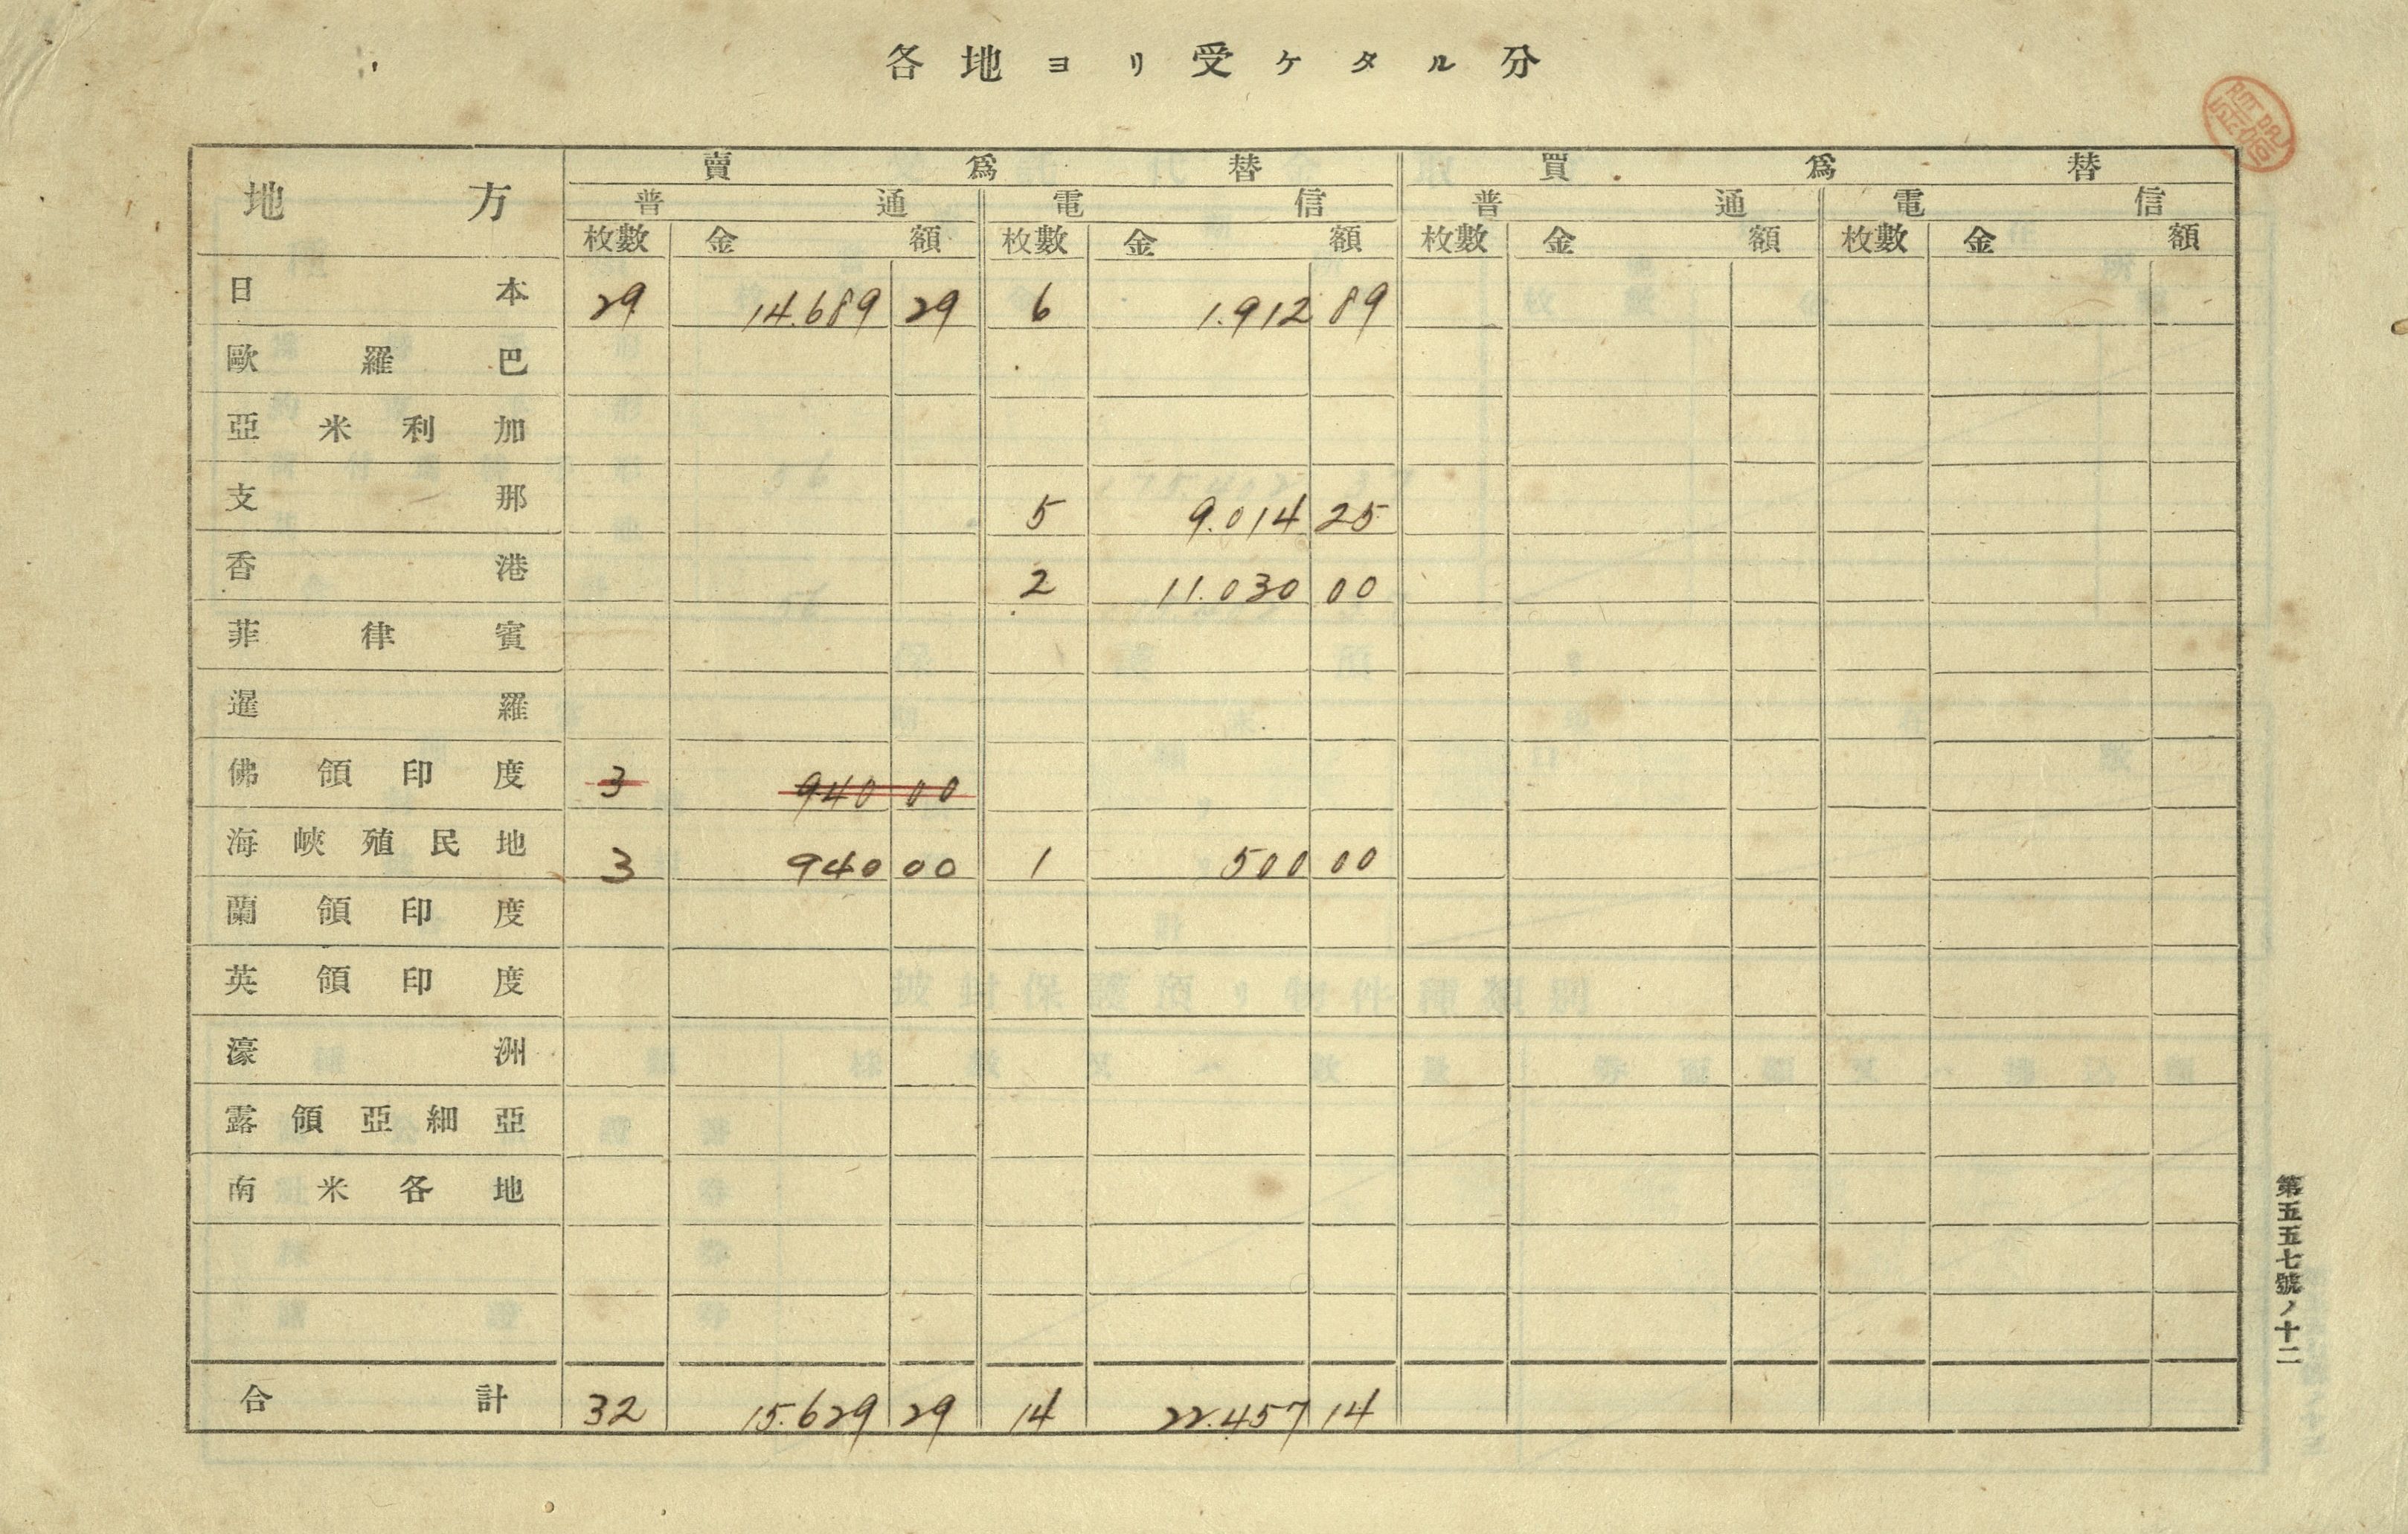 各地ヨリ受ケタル分
地方 賣爲替 買爲替
普通 電信 普通 電信
枚數 金額 枚數 金額 枚數 金額 枚數 金額
日本 29 14.689 29 6 1.912 89
歐羅巴
亞米利加
支那 5 9.014 25
香港 2 11.030 00
菲律賓
暹羅
佛領印度 3 940 00
海峽殖民地 3 940 00 1 500 00
蘭領印度
英領印度
濠洲
露領亞細亞
南米各地
合計 32 15.629 29 14 22.457 14
第五五七號ノ十二